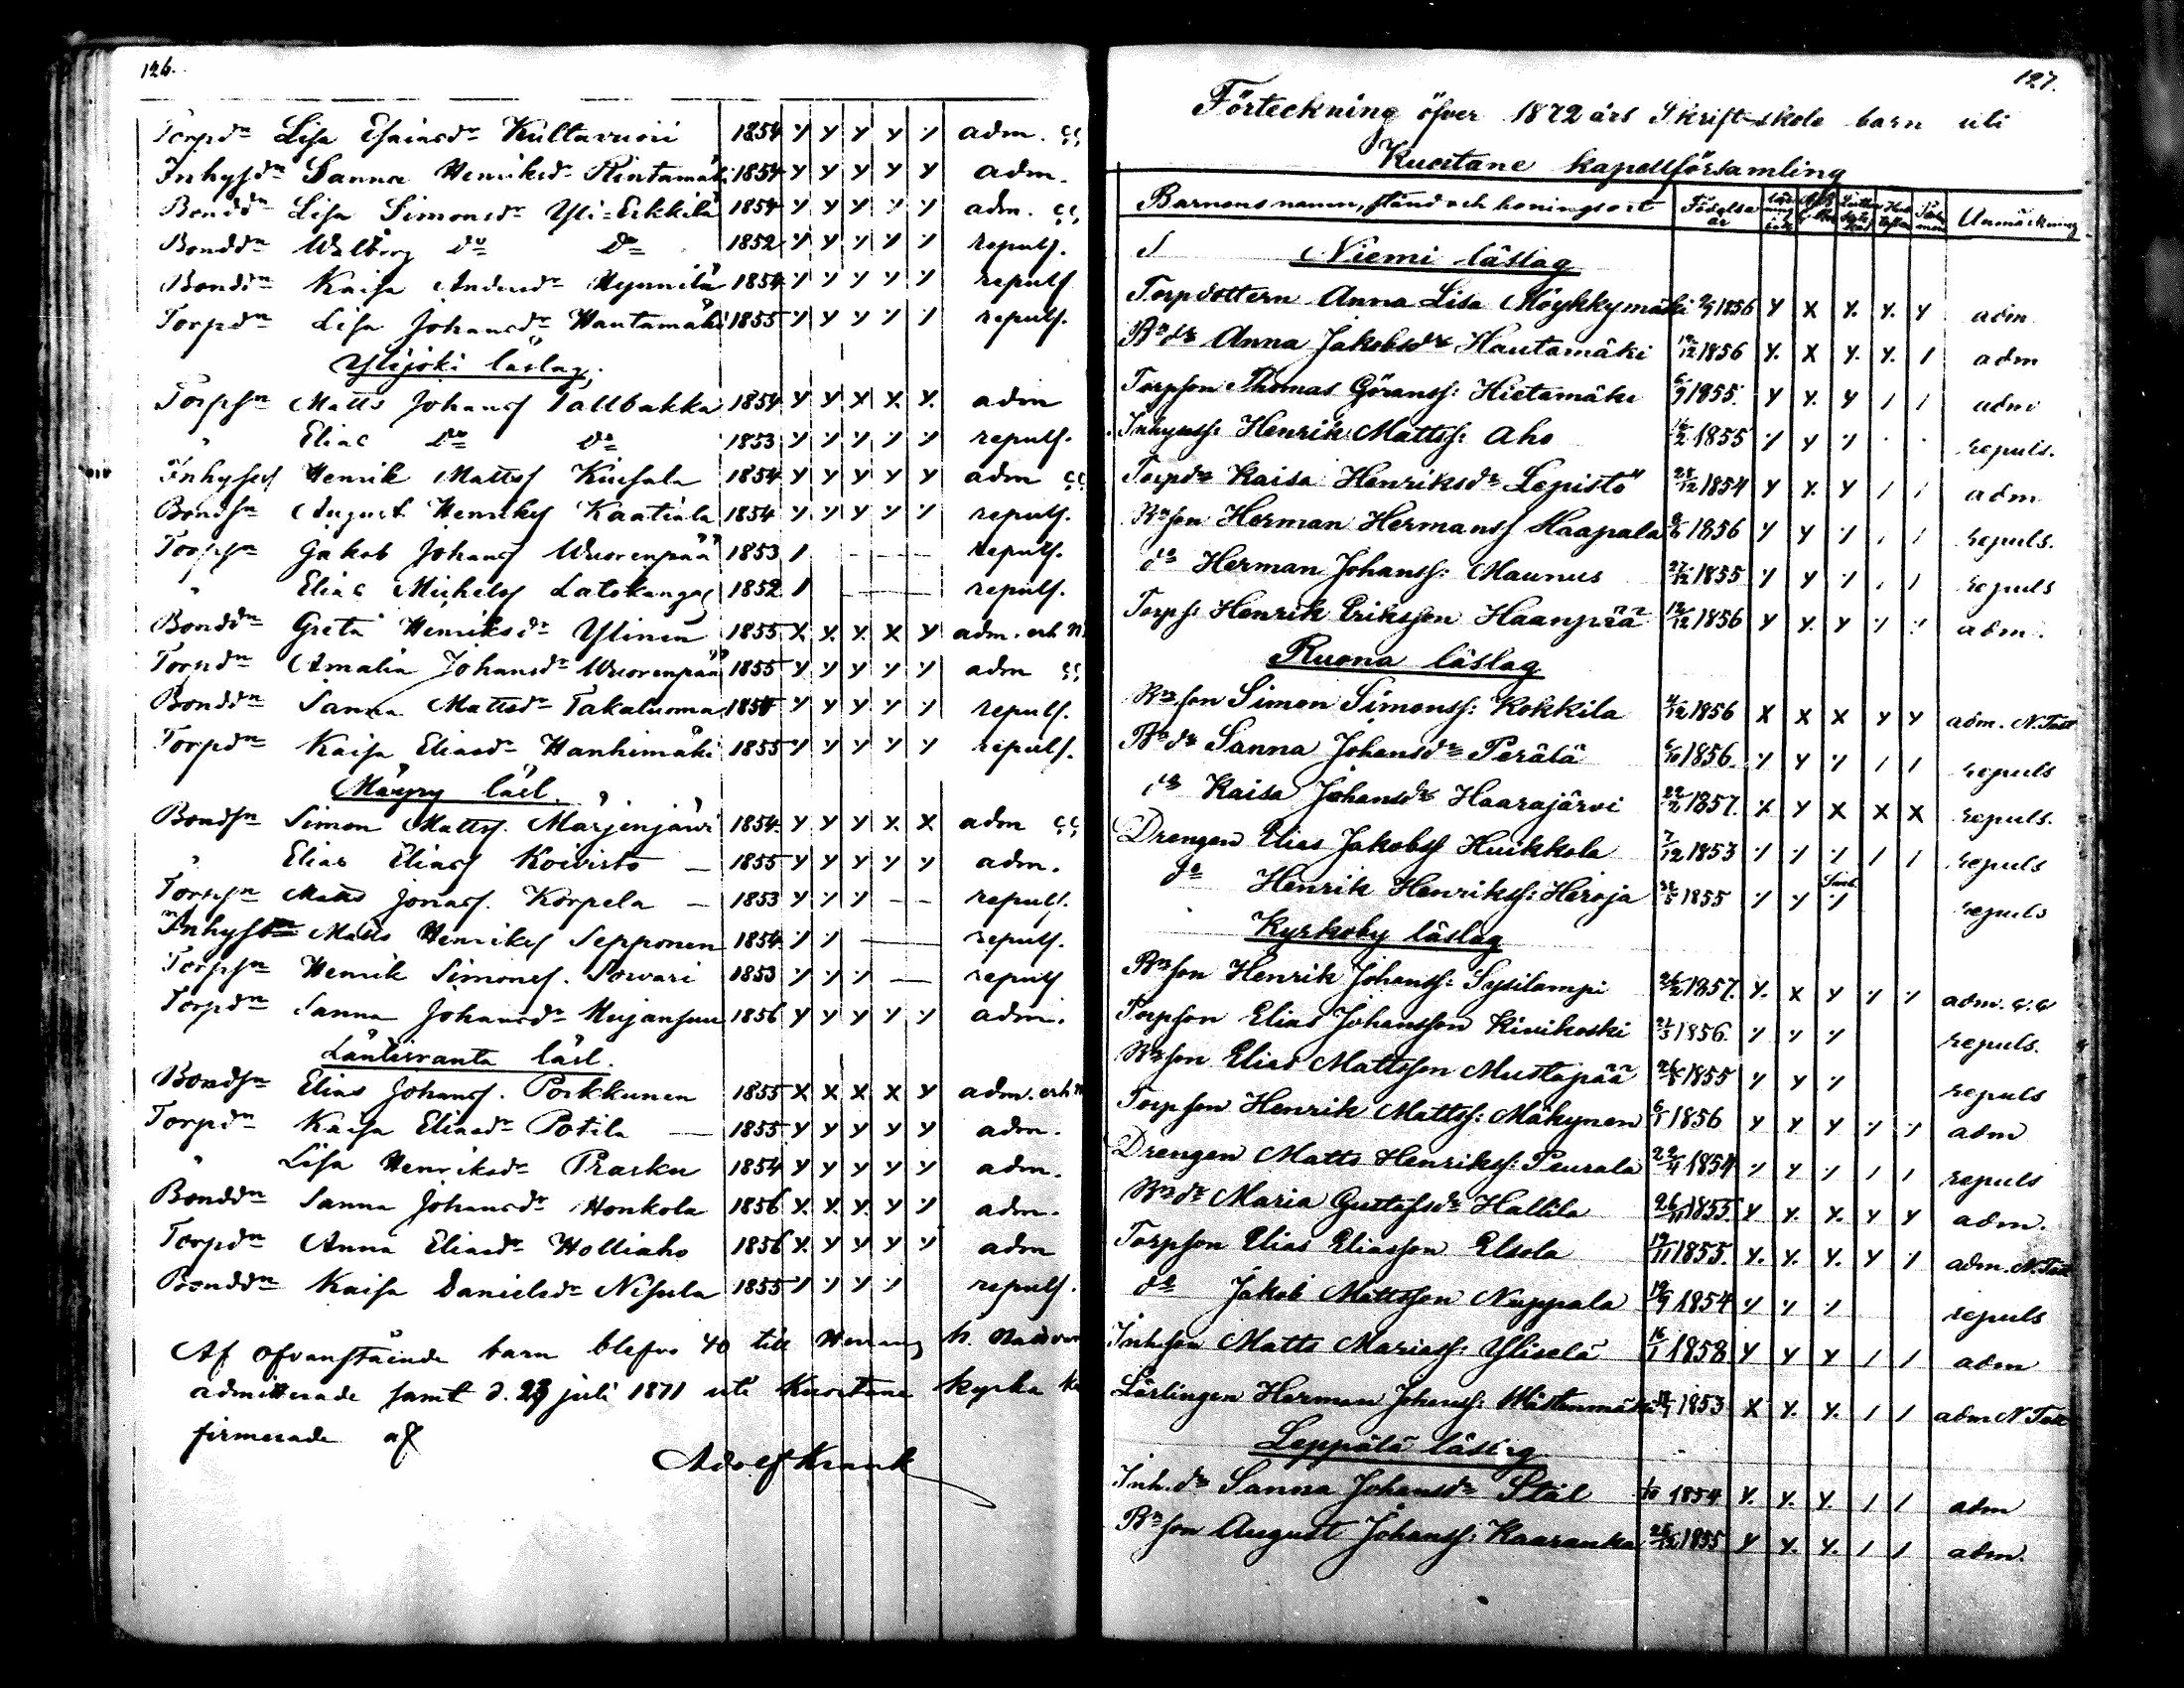 126.
Torpdn Lisa Esaiasdr Kultavuori 1854 y y y y y adm. çç
Inhysdn Sanna Henriksdr Rintamäki 1854 y y y y y adm.
Bonddn Lisa Simonsdr Yli=Erkkilä 1854 y y y y y adm. çç
Bonddn Walborg do do 1852 y y y y y repuls.
Bonddn Kaisa Andersdr Hynnilä 1854 y y y y y repuls
Torpdn Lisa Johansdr Hautamäki 1855 y y y y y repuls.
Ylijoki läslag.
Torpsn Matts Johanss Tallbakka 1854 y y y y y adm
" Elias do do 1853 y y y y y repuls.
Inhyses Henrik Mattss 1854 y y y y y adm çç
Bondsn August Henrikss Kaatiala 1854 y y y y y repuls.
Torpsn Jakob Johanss Wuorenpää 1853 / — — repuls.
" Elias Michelss Latokangas 1852 / — — repuls.
Bonddn Greta Henriksdr Ylinen 1855 x y. y. x y adm. erh N.
Torpdn Amalia Johansdr Wuorenpää 1855 y y y y y adm çç
Bonddn Sanna Mattsdr Takaluoma 1855 y y y y y repuls.
Torpdn Kaisa Eliasdr Wanhimäki 1855 y y y y y repuls.
Mäyry läsl.
Bondsn Simon Mattss. Märjenjärvi 1854 y y y x x adm çç
" Elias Eliass Koivisto — 1855 y y y y y adm.
Torpsn Matts Jonass. Korpela — 1853 y y y — — repuls.
Inhyssn Matts Henrikss Sepponen 1854 y y — repuls.
Torpsn Henrik Simonss. Sorvari 1853 y y y — repuls
Torpdn Sanna Johansdr Mujansuu 1856 y y y y y adm.
Länsiranta läsl.
Bondsn Elias Johanss. Porkkunen 1855 x x x x y adm. erh N
Torpdn Kaisa Eliasdr Potila — 1855 y y y y y adm.
" Lisa Henriksdr Prasku 1854 y y y y y adm.
Bonddn Sanna Johansdr Honkola 1856 y. y. y. y y adm.
Torpdn Anna Eliasdr Holliaho 1856 y. y y y y adm
Bonddn Kaisa Danielsdr Nisula 1855 y y y y repuls.
Af ofvanstående barn blefvo 40 till Herrans h. Nattvar
admitterade samt d. 23 juli 1871 uti Kuortane kyrka
firmerade af
Adolf Krank
127.
Förteckning öfver 1872 års Skriftskole barn uti
Kuortane kapellförsamling
Barnens namn, stånd och boningsort Födelse år Anmärkning
Niemi läslag
Torpdottern Anna Lisa Möykkymäki 2/9 1856 y x y. y. y adm
Bndr Anna Jakobsdr Hautamäki 19/12 1856 y. x y. y. / adm
Torpson Thomas Göranss: Hietamäki 6/9 1855. y y. y / / adm
Inhyss: Henrik Mattss: Aho 16/2 1855 y y y · · repuls.
Torpdr Kaisa Henriksdr Lepistö 28/12 1854 y y. y / / adm
Bnson Herman Hermanss Haapala 8/6 1856 y y y / / repuls.
do Herman Johanss: Maunus 27/12 1855 y y y / / repuls
Torps: Henrik Eriksson Haanpää 19/12 1856 y y. y y y adm.
Ruona läslag
Bnson Simon Simonss: Kokkila 4/12 1856 x x x y y adm. N. Test
Bndr Sanna Johansdr Perälä 6/10 1856. y y y / / repuls
do Kaisa Johansdr Haarajärvi 22/2 1857. x y x x x repuls.
Drengen Elias Jakobss Huikkola 7/12 1853 y y y / / repuls
do Henrik Henrikss: Heroja 1855 y y y repuls
Kyrkoby läslag
Bnson Henrik Johanss: Sysilampi 26/2 1857. y. x y y y adm.
Torpson Elias Johansson Kivikoski 21/3 1856. y y y repuls.
Bnson Elias Mattsson Mustapää 26/8 1855 y y y repuls
Torpson Henrik Mattss: Mäkynen 6/1 1856 y y y y y adm
Drengen Matts Henrikss: Peurala 22/4 1854 y y y / / repuls
Bndr Maria Gustafsdr Hallila 26/11 1855. y y. y. y y adm.
Torpson Elias Eliasson Elsola 19/11 1855. y. y. y. y y adm. N. Test
do Jakob Mattsson Nuppala 19/9 1854 y y y repuls
Inhson Matts Mariass: Yliselä 16/1 1858 y y y / / adm
Lärlingen Herman Johanss: 1853 x y. y. / / adm N. Test
Leppälä läslag
Inh.dr Sanna Johansdr Stål 1/10 1854 y. y. y. / / adm
Bnson August Johanss: Kaaranka 25/12 1855 y y. y. / / adm.